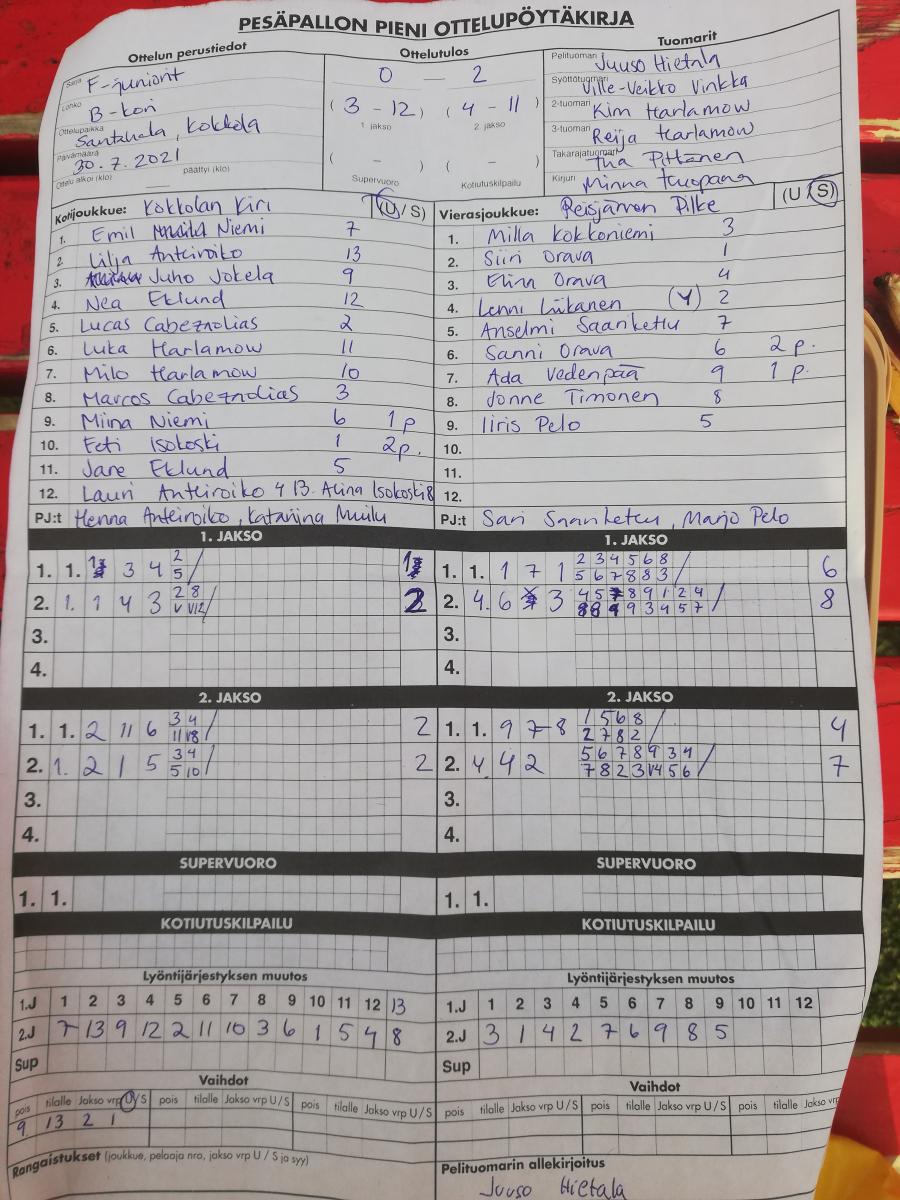 PESÄPALLON PIENI OTTELUPÖYTÄKIRJA
Ottelun perustiedot
Sarja F-juniorit
Lohko B-kori
Ottelupaikka Santahaka, Kokkola
Päivämäärä 30.7.2021
Ottelu alkoi (klo) päättyi (klo)
Ottelutulos
0 — 2
(3 - 12) (4 - 11)
1 jakso 2. jakso
( - ) ( - )
Supervuoro Kotiutuskilpailu
Tuomarit
Pelituomari Juuso Hietala
Syöttötuomari Ville-Veikko Vinkka
2-tuomari Kim Harlamow
3-tuomari Reija Harlamow
Takarajatuomari Tiia Pittänen
Kirjuri Minna
Kotijoukkue: Kokkolan Kiri (U/S)
1. Emil Niemi 7
2. Lilja Anteroiko 13
3. Juho Jokela 9
4. Nea Eklund 12
5. Lucas Cabeznolias 2
6. Luka Harlamow 11
7. Milo Harlamow 10
8. Marcos Cabeznolias 3
9. Miina Niemi 6 1 p
10. Eeti Isokoski 1 2p.
11. Jane Eklund 5
12. Lauri Anteroiko 4 13. Alina Isokoski 8
PJ:t Henna Anteroiko, Katariina Muilu
Vierasjoukkue: Reisjärven Pilke (U/S)
1. Milla Kokkoniemi 3
2. Siiri Orava 1
3. Elina Orava 4
4. Lenni Liikanen (Y) 2
5. Anselmi Saarikettu 7
6. Sanni Orava 6 2 p.
7. Ada Vedenpää 9 1 p.
8. Jonne Timonen 8
9. Iiris Pelo 5
10.
11.
12.
PJ:t Sari Saarikettu, Marjo Pelo
1. JAKSO
1. 1. 3 4 2 / 1
5
2. 1. 1 4 3 2 8 / 2
V V12
3.
4.
1. JAKSO
1. 1. 1 7 1 2 3 4 5 6 8 / 6
5 6 7 8 8 3
2. 4. 6 3 4 5 7 8 9 1 2 4 / 8
8 8 9 9 3 4 5 7
3.
4.
2. JAKSO
1. 1. 2 11 6 3 4 / 2
11 V8
2. 1. 2 1 5 3 4 / 2
5 10
3.
4.
2. JAKSO
1. 1. 9 7 8 1 5 6 8 / 4
2 7 8 2
2. 4. 4 2 5 6 7 8 9 3 4 / 7
7 8 2 3 V4 5 6
3.
4.
SUPERVUORO
1. 1.
SUPERVUORO
1. 1.
KOTIUTUSKILPAILU
KOTIUTUSKILPAILU
Lyöntijärjestyksen muutos
1.J 1 2 3 4 5 6 7 8 9 10 11 12 13
2.J 7 13 9 12 2 11 10 3 6 1 5 4 8
Sup
Lyöntijärjestyksen muutos
1.J 1 2 3 4 5 6 7 8 9 10 11 12
2.J 3 1 4 2 7 6 9 8 5
Sup
Vaihdot
pois tilalle Jakso vrp U/S pois tilalle Jakso vrp U/S pois tilalle Jakso vrp U/S
9 13 2 1
Vaihdot
pois tilalle Jakso vrp U/S pois tilalle Jakso vrp U/S pois tilalle Jakso vrp
Rangaistukset (joukkue, pelaaja nro, jakso vrp U / S ja syy)
Pelituomarin allekirjoitus
Juuso Hietala